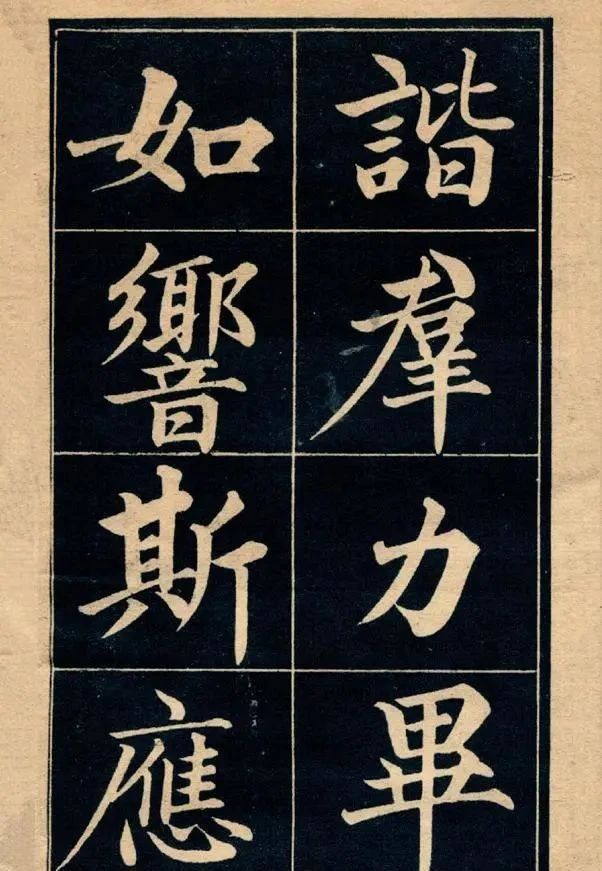 諧羣力畢
如響斯應